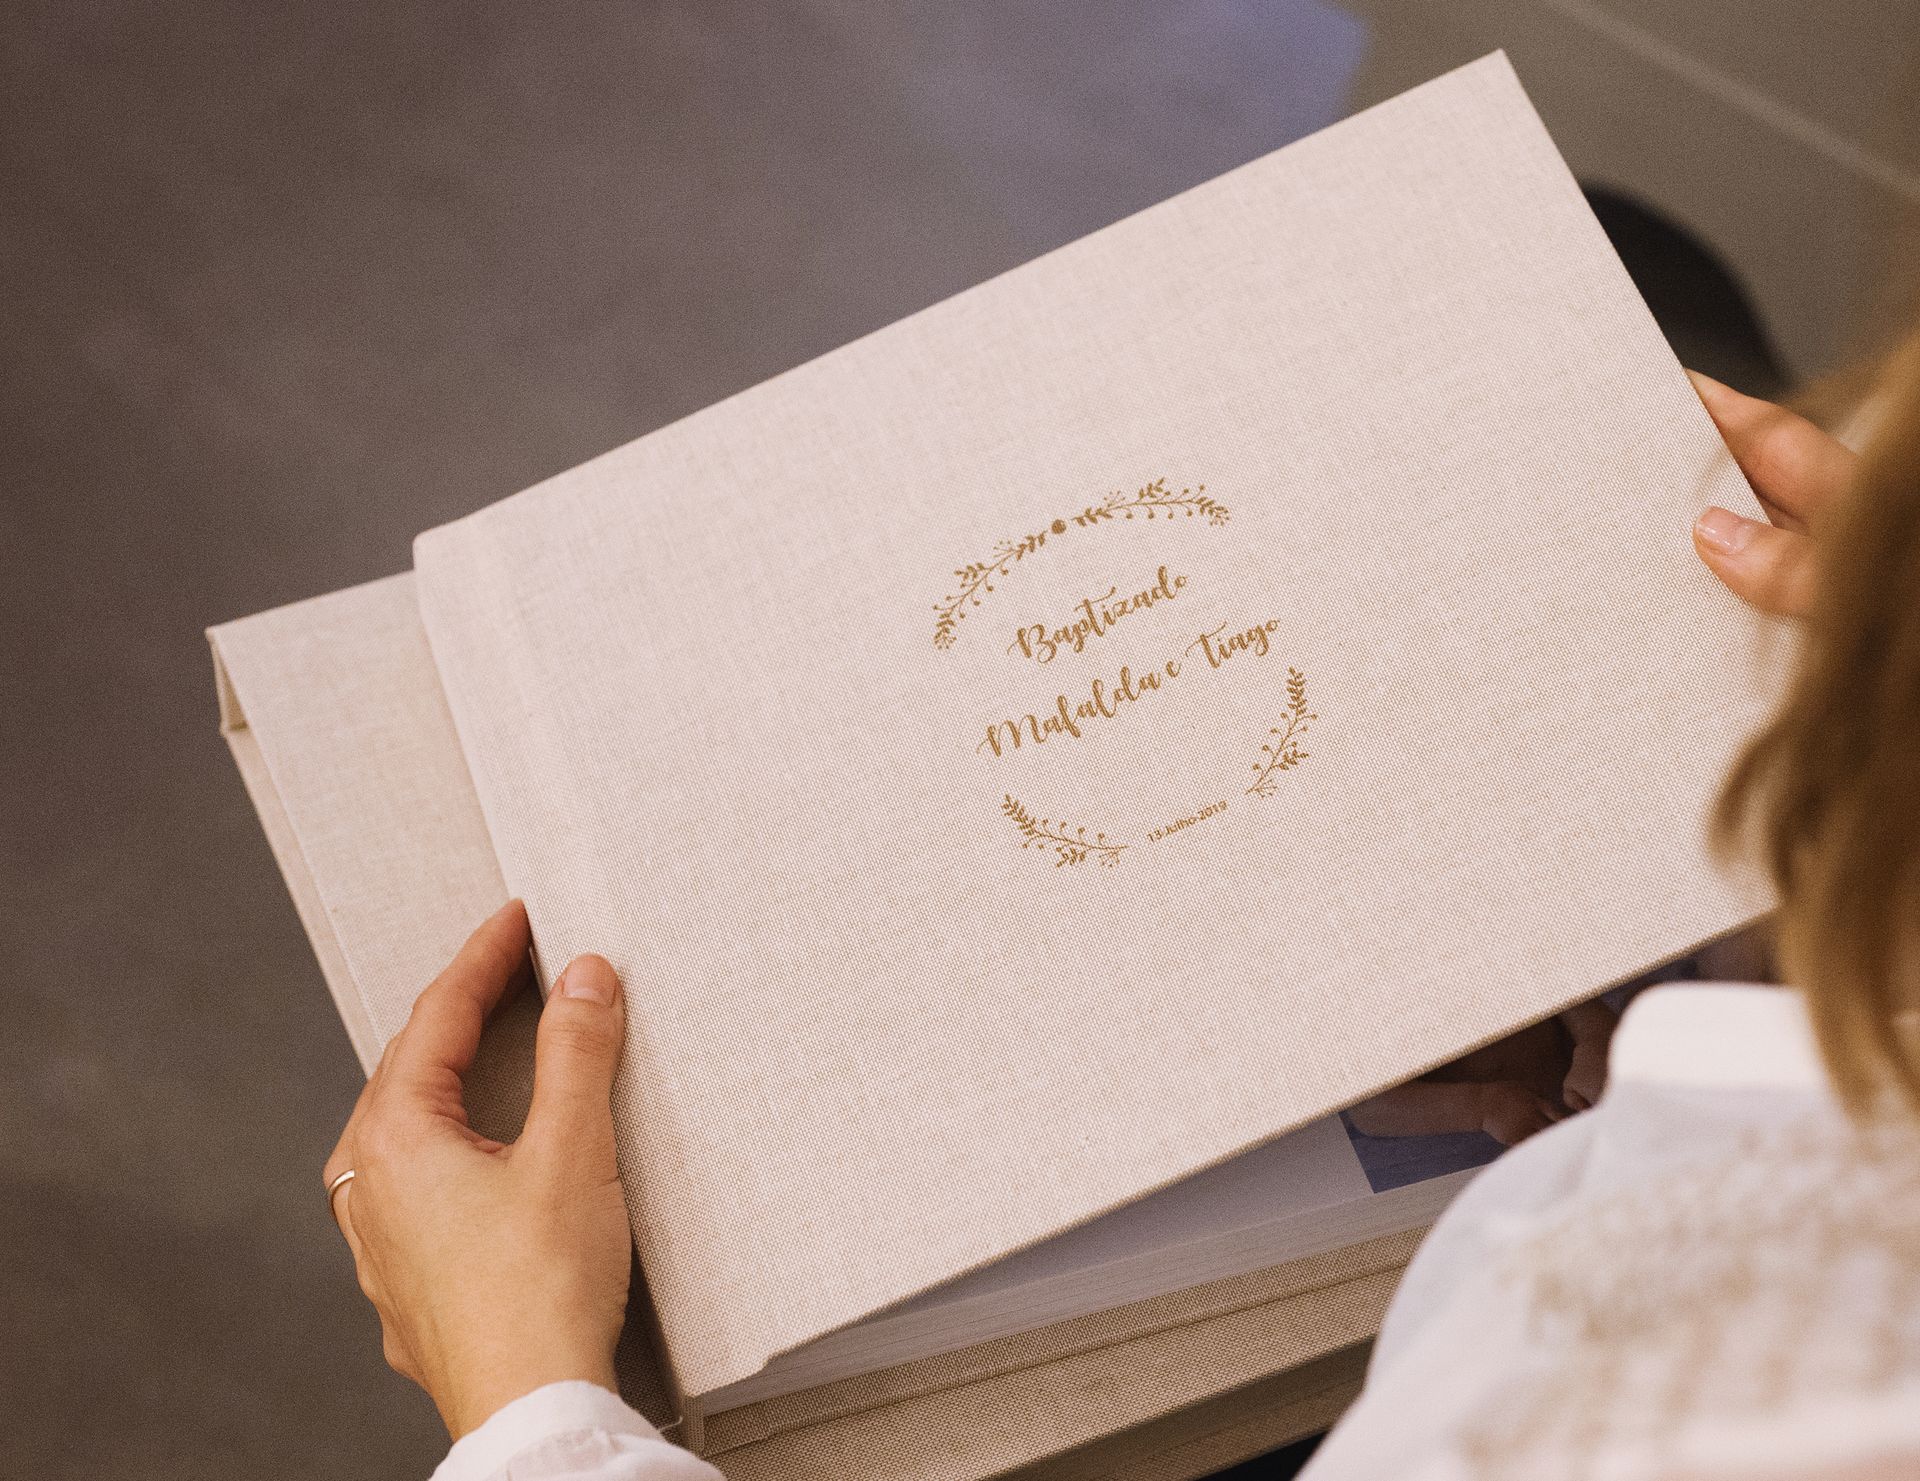 Baptizado
Mafalda e Tiago
13 Julho 2019